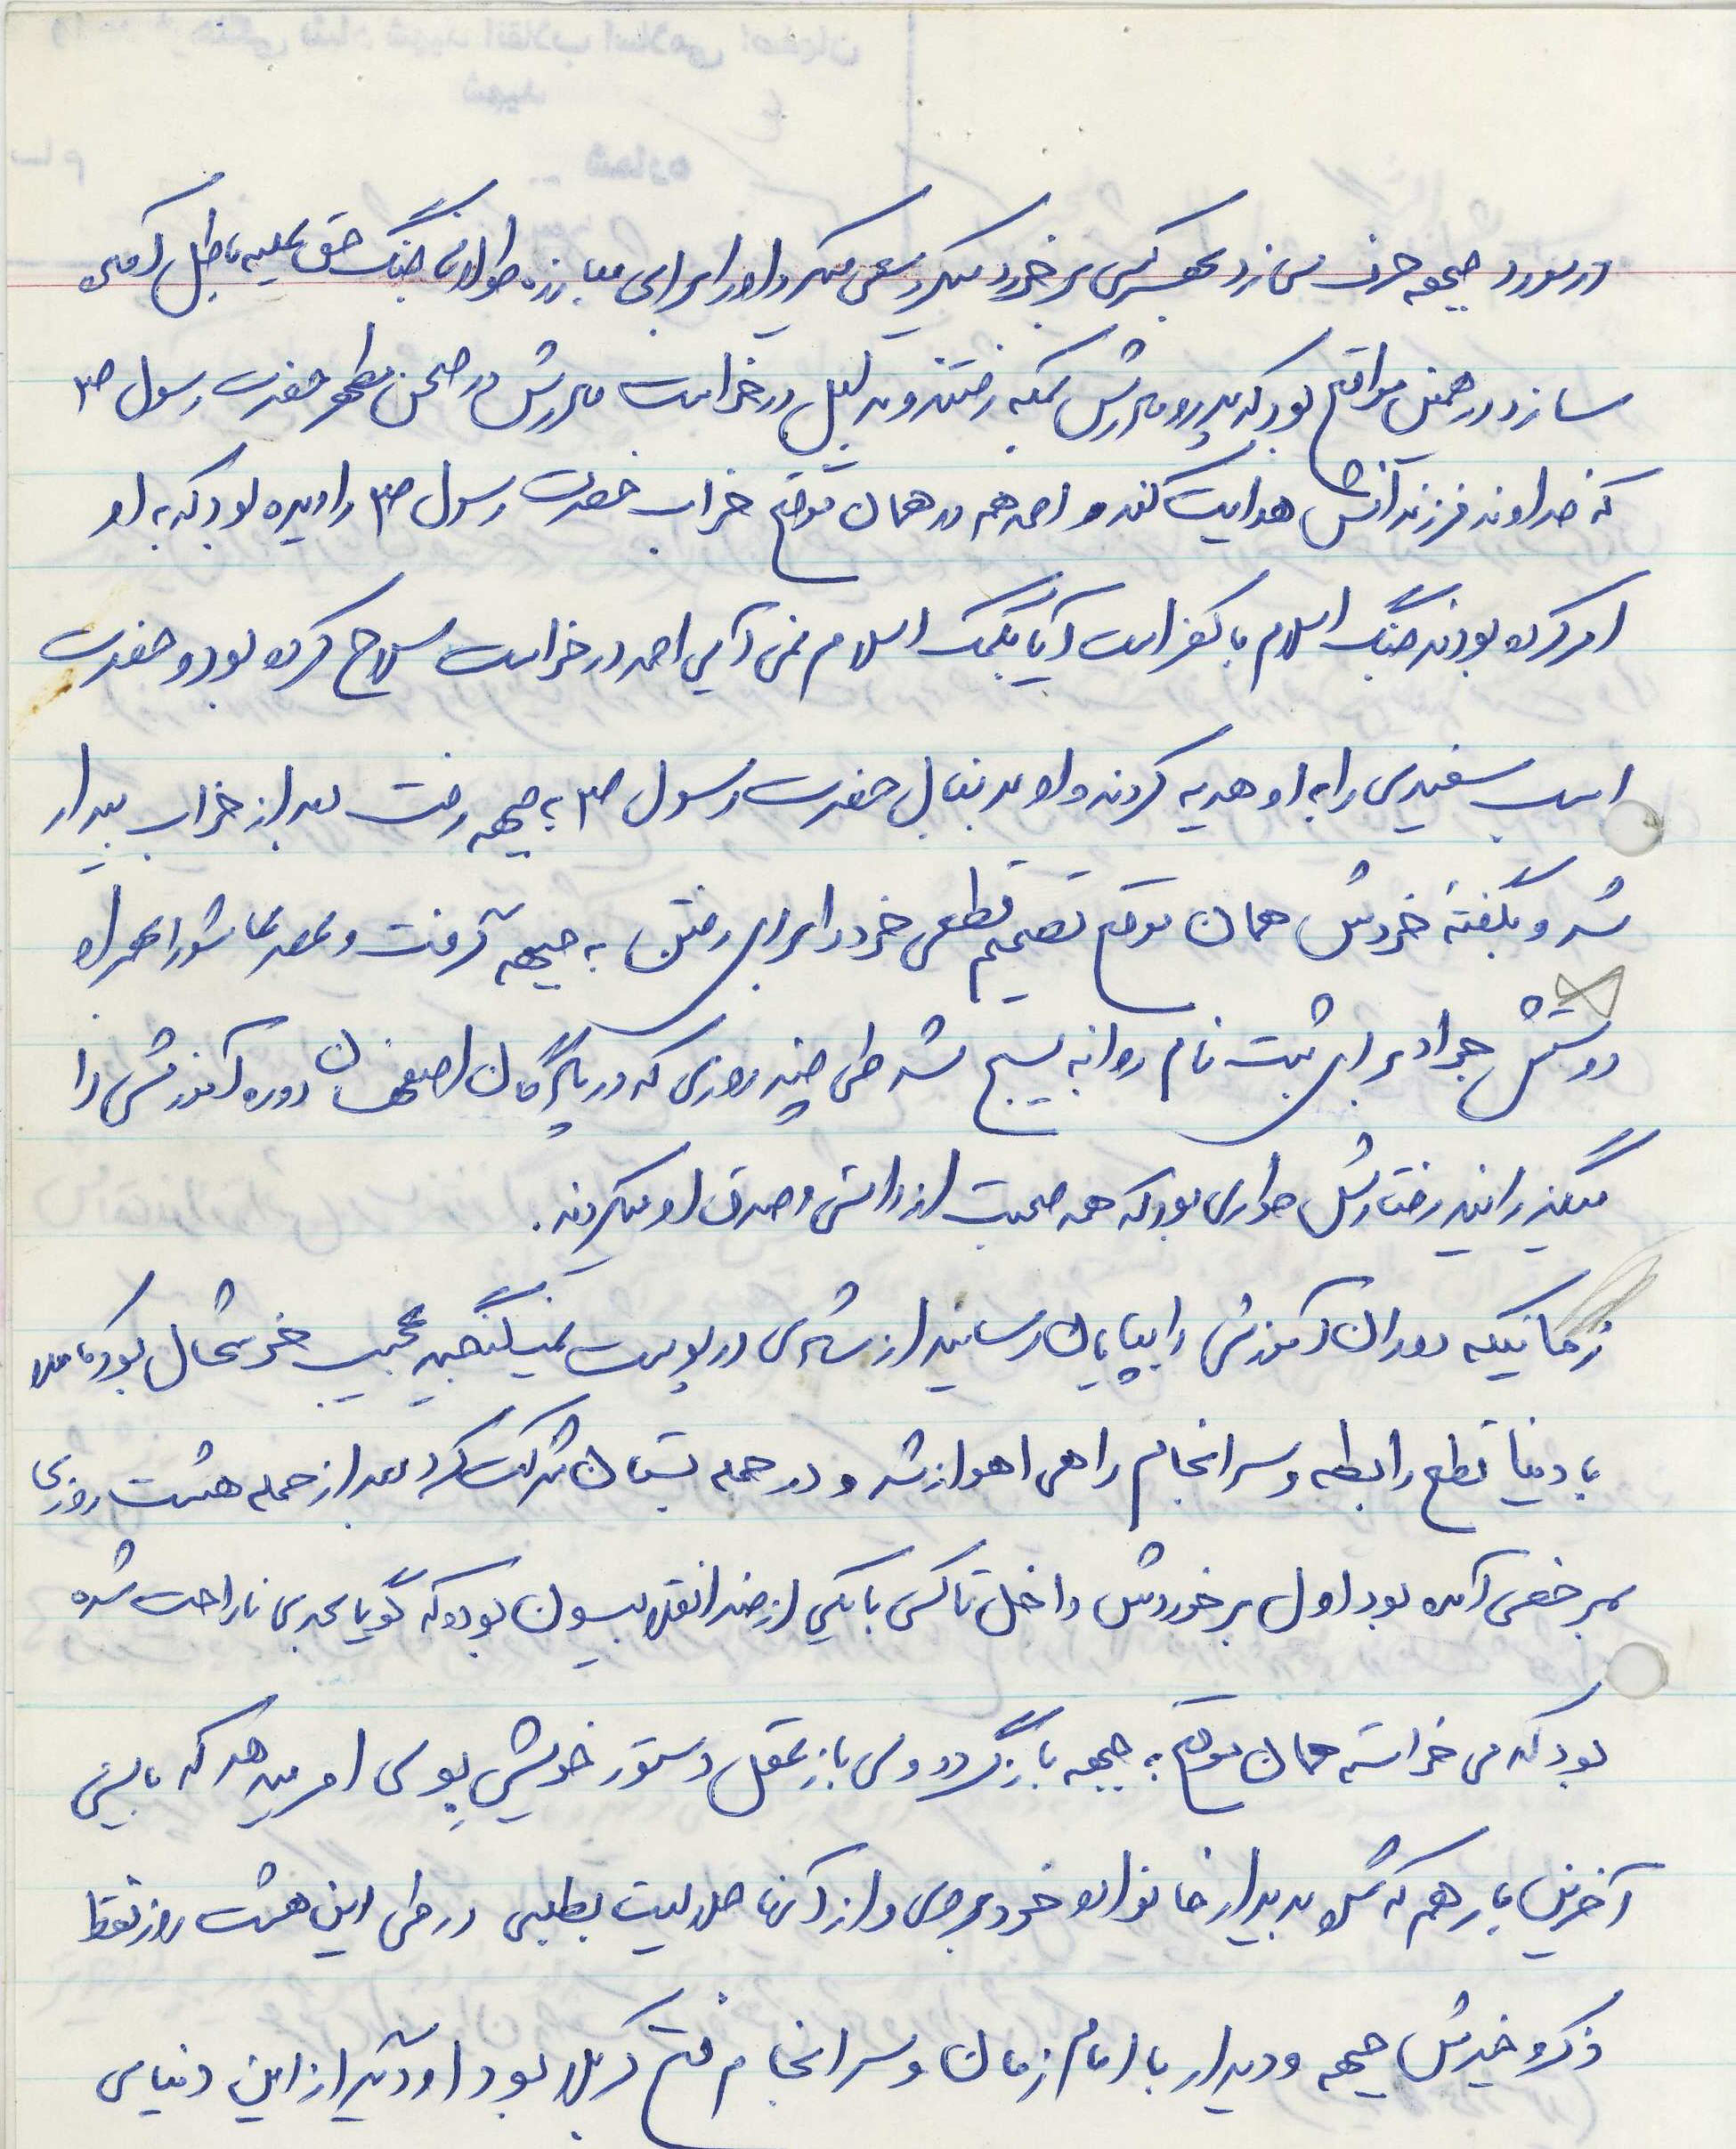 در مورد جبهه حرف می زد بهرکس برخورد میکرد سعی میکرد او را برای مبارزه طولانی جنگ حق علیه باطل آماده
سازد در همین مواقع بود که پدر و مادرش بمکه رفتند و بدلیل درخواست مادرش در صحن مطهر حضرت رسول ص
که خداوند فرزندانش هدایت کند و احمد هم در همان موقع خواب حضرت رسول ص را دیده بود که به او
امر کرده بودند جنگ اسلام با کفر است آیا بکمک اسلام نمی آیی احمد درخواست سلاح کرده بود و حضرت
اسب سفیدی را به او هدیه کردند و او بدنبال حضرت رسول ص به جبهه رفت بعد از خواب بیدار
شد و بگفته خودش همان موقع تصمیم قطعی خود را برای رفتن به جبهه گرفت و عصر عاشورا همراه
دوستش جواد برای ثبت نام روانه بسیج شد طی چند روزی که در پادگان اصفهان دوره آموزش را
میگذرانید رفتارش طوری بود که همه صحبت از راستی و صدق او میکردند.
زمانیکه دوران آموزش را بپایان رسانید از شادی در پوست نمیگنجید عجیب خوشحال بود کاملا
با دنیا قطع رابطه و سرانجام راهی اهواز شد و در حمله بستان شرکت کرد بعد از حمله هشت روزی
بمرخصی آمده بود اول برخوردش داخل تاکسی با یکی از ضد انقلابیون بود که گویا بحدی ناراحت شده
بود که می خواسته همان موقع به جبهه بازگردد ولی باز عقل دستور خویش بوی امر میدهد که بایستی
آخرین بار هم که شده بدیدار خانواده خود بروی و از آنها حلالیت بطلبی در طی این هشت روز فقط
ذکر و خیرش جبهه و دیدار با امام زمان و سرانجام فتح کربلا بود او دیگر از این دنیای